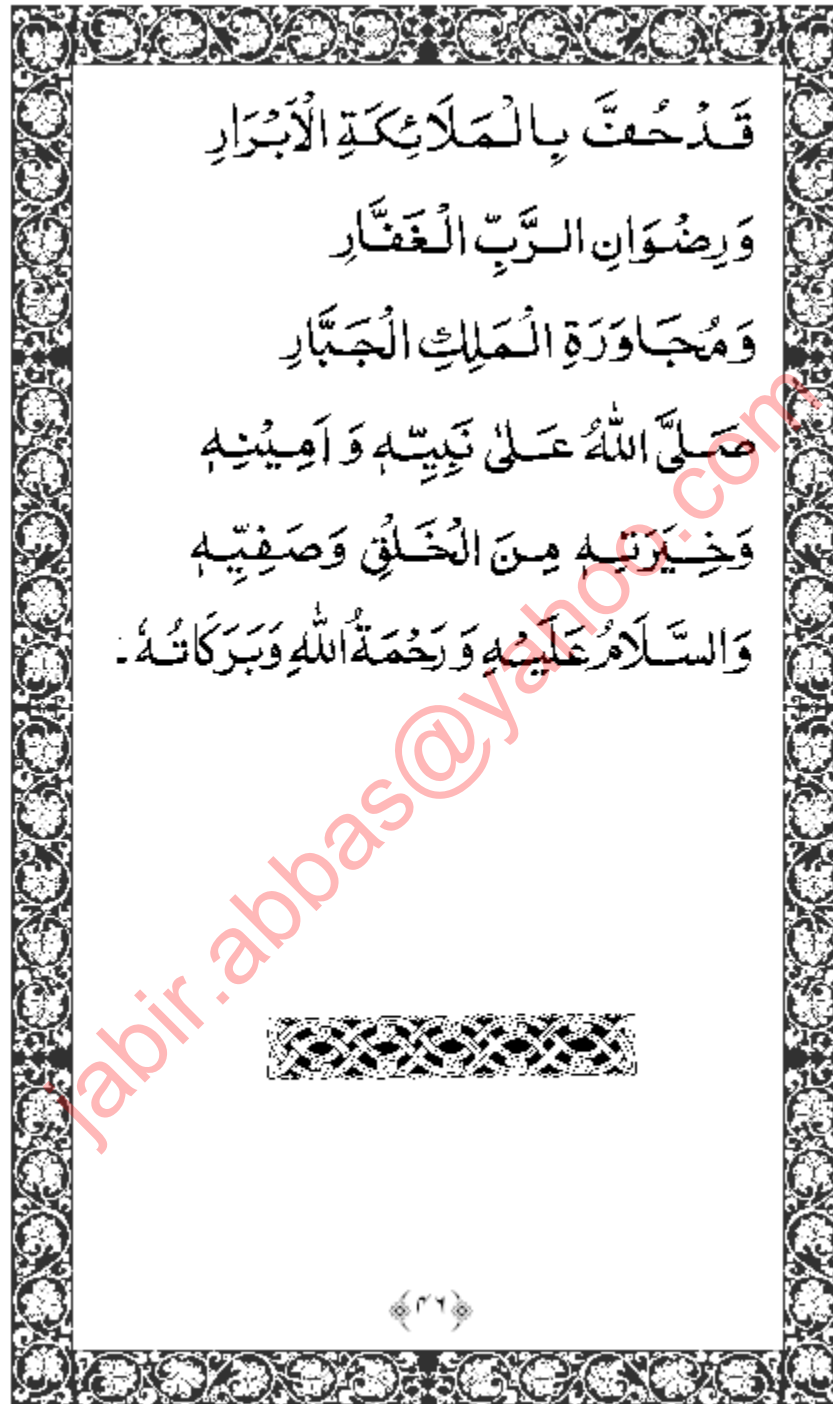 قَدْ حُفَّ بِالْمَلَائِكَةِ الْاَبْرَارِ
وَرِضْوَانِ الرَّبِّ الْغَفَّارِ
وَمُجَاوَرَةِ الْمَلِكِ الْجَبَّارِ
صَلَّى اللّٰهُ عَلٰى نَبِيِّهٖ وَ اَمِيْنِهٖ
وَخِيَرَتِهٖ مِنَ الْخَلْقِ وَصَفِيِّهٖ
وَالسَّلَامُ عَلَيْهِ وَرَحْمَةُ اللّٰهِ وَبَرَكَاتُهٗ۔
jabir.abbas@yahoo.com
﴿۴۶﴾